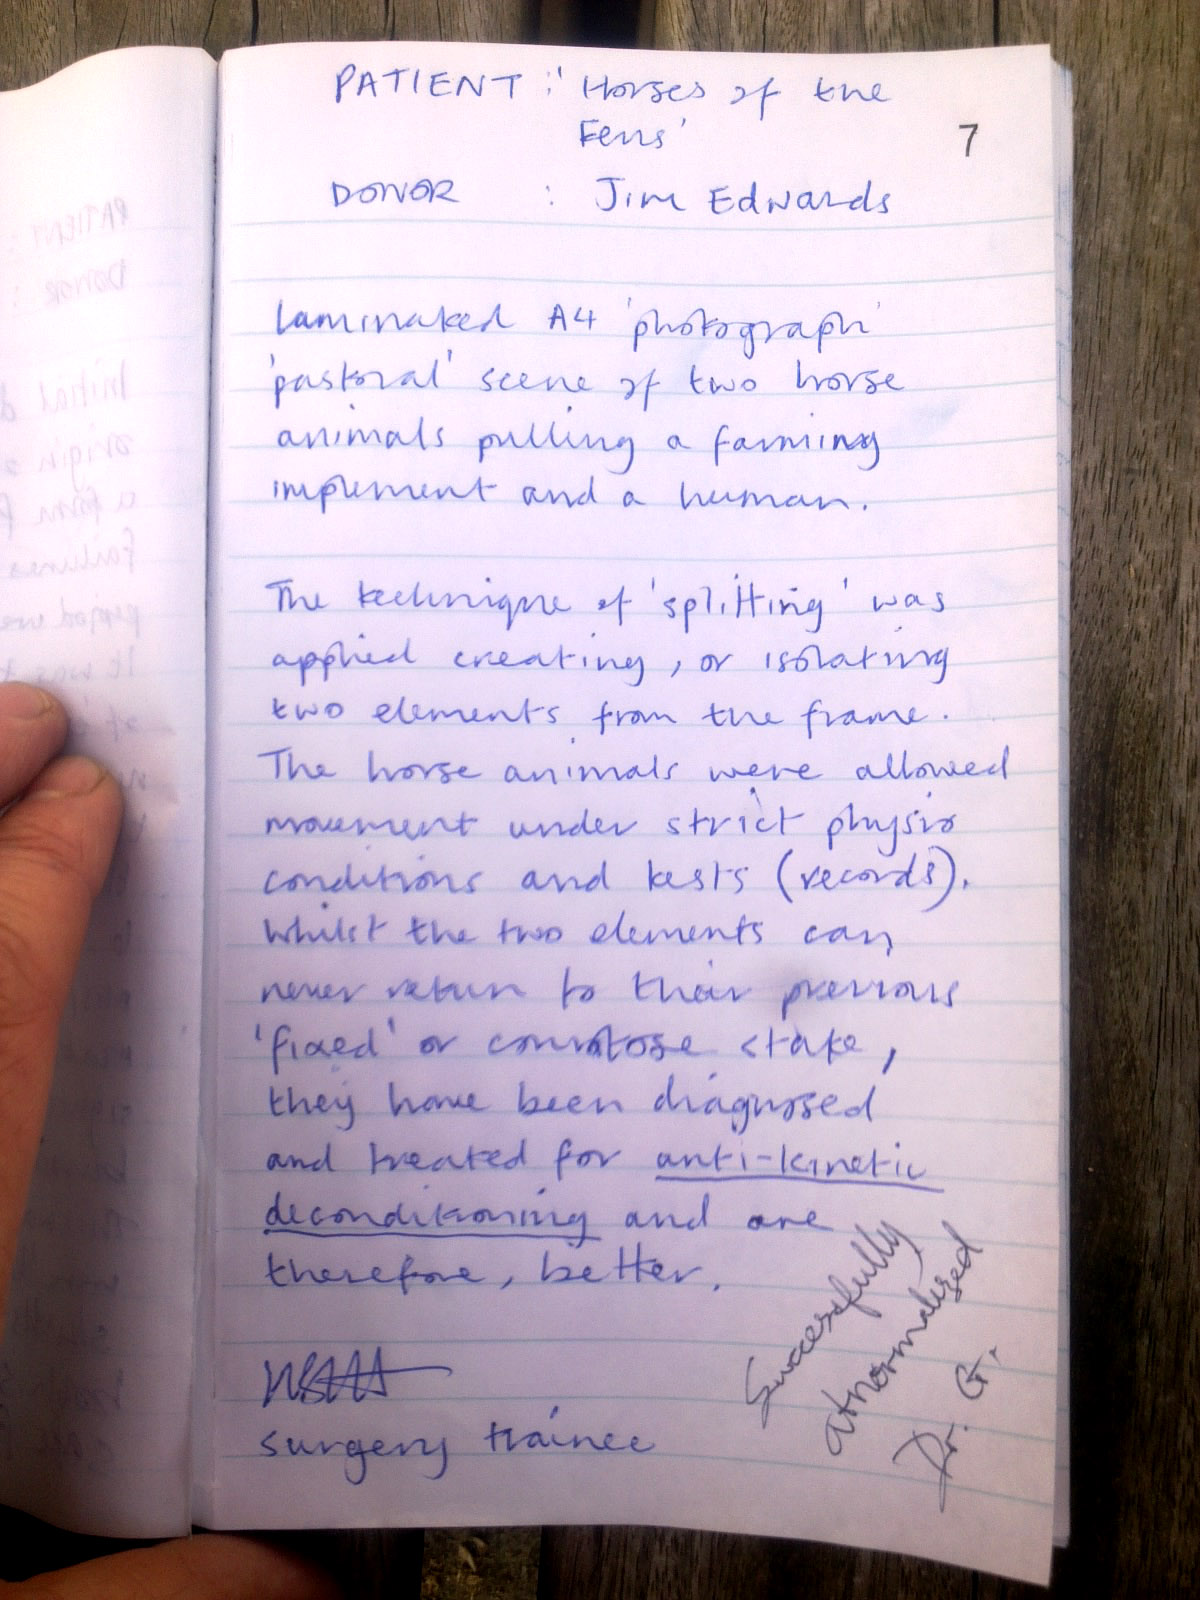 PATIENT : 'Horses of the
Fens'
7
DONOR : Jim Edwards
Laminated A4 'photograph'
'pastoral' scene of two horse
animals pulling a farming
implement and a human.
The technique of 'splitting' was
applied creating, or isolating
two elements from the frame.
The horse animals were allowed
movement under strict physio
conditions and tests (records).
Whilst the two elements can
never return to their previous
'fixed' or comatose state,
they have been diagnosed
and treated for anti-kinetic
deconditioning and are
therefore, better.
surgery trainee
Successfully
abnormalized
Dr. G.
PATIENT :
DONOR :
Initial
origin
a form
failures
period
It was
of